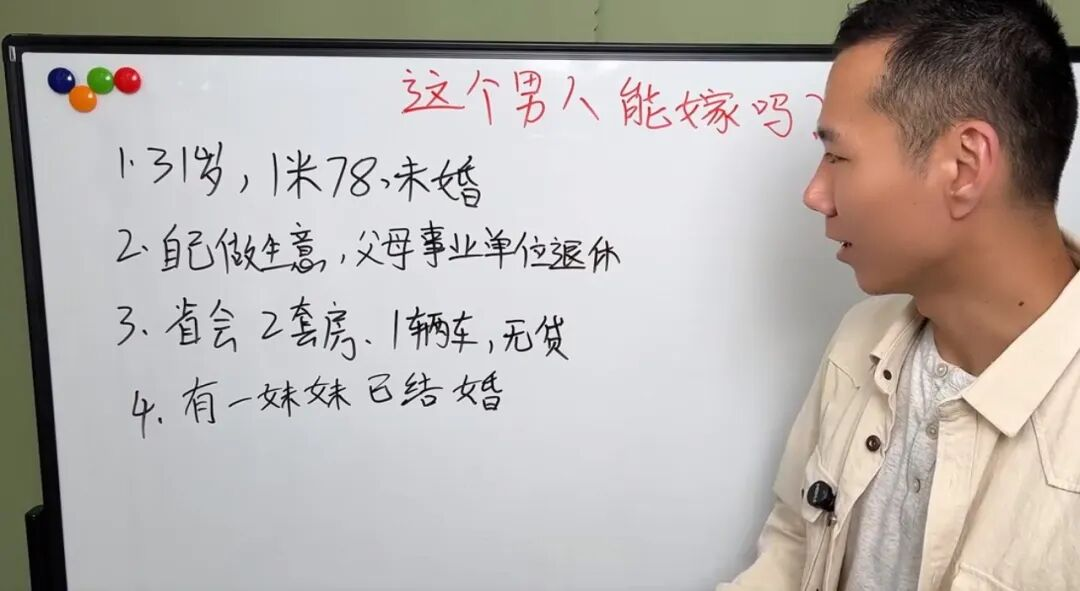 这个男人能嫁吗?
1.31岁,1米78、未婚
2.自己做生意,父母事业单位退休
3.省会2套房、1辆车,无贷
4.有一妹妹已结婚